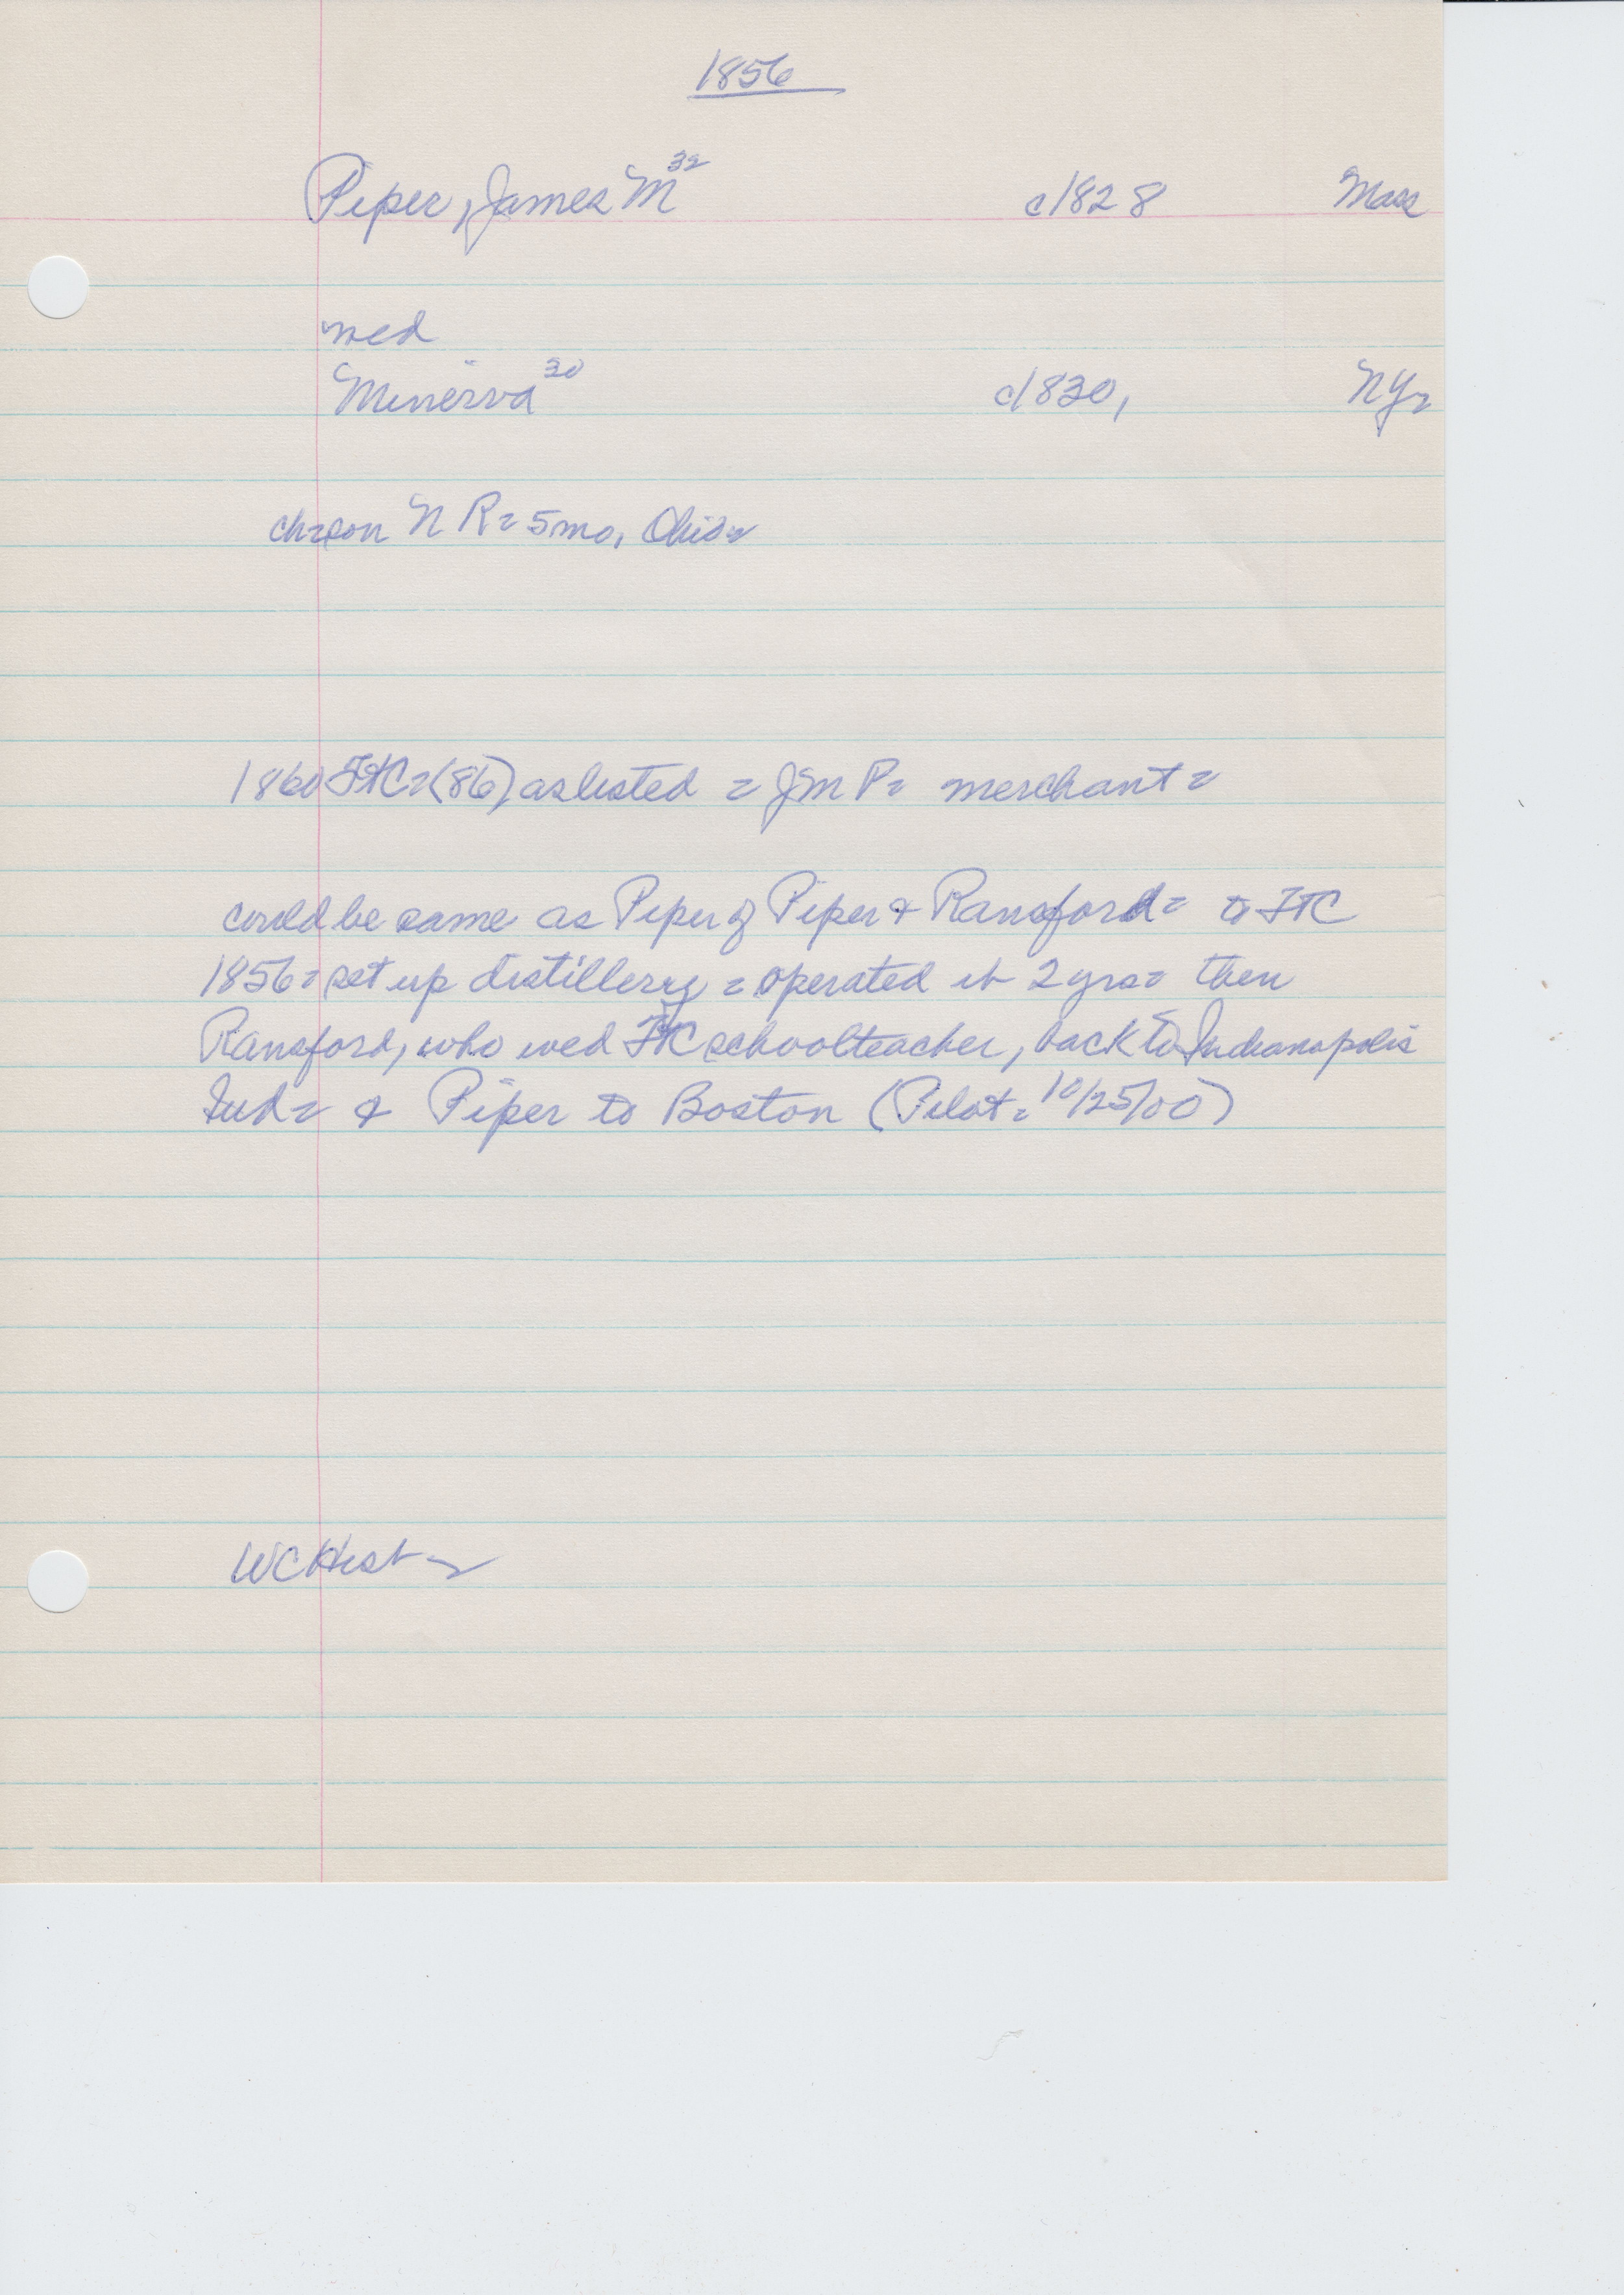 1856
Piper, James M 32 c1828 Mass
wed
Minerva 30 c1830, NY=
ch=son N R= 5mo, Ohio=
1860 FtC=(86) as listed = JMP= merchant=
could be same as Piper of Piper & Ransford= to FTC
1856= set up distillery = operated it 2 yrs= then
Ransford, who wed FtC schoolteacher, back to Indianapolis
Ind= & Piper to Boston (Pilot= 10/25/00)
WC Hist=